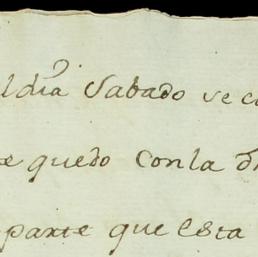 el dia Sabado se
quedo con la
parte que esta